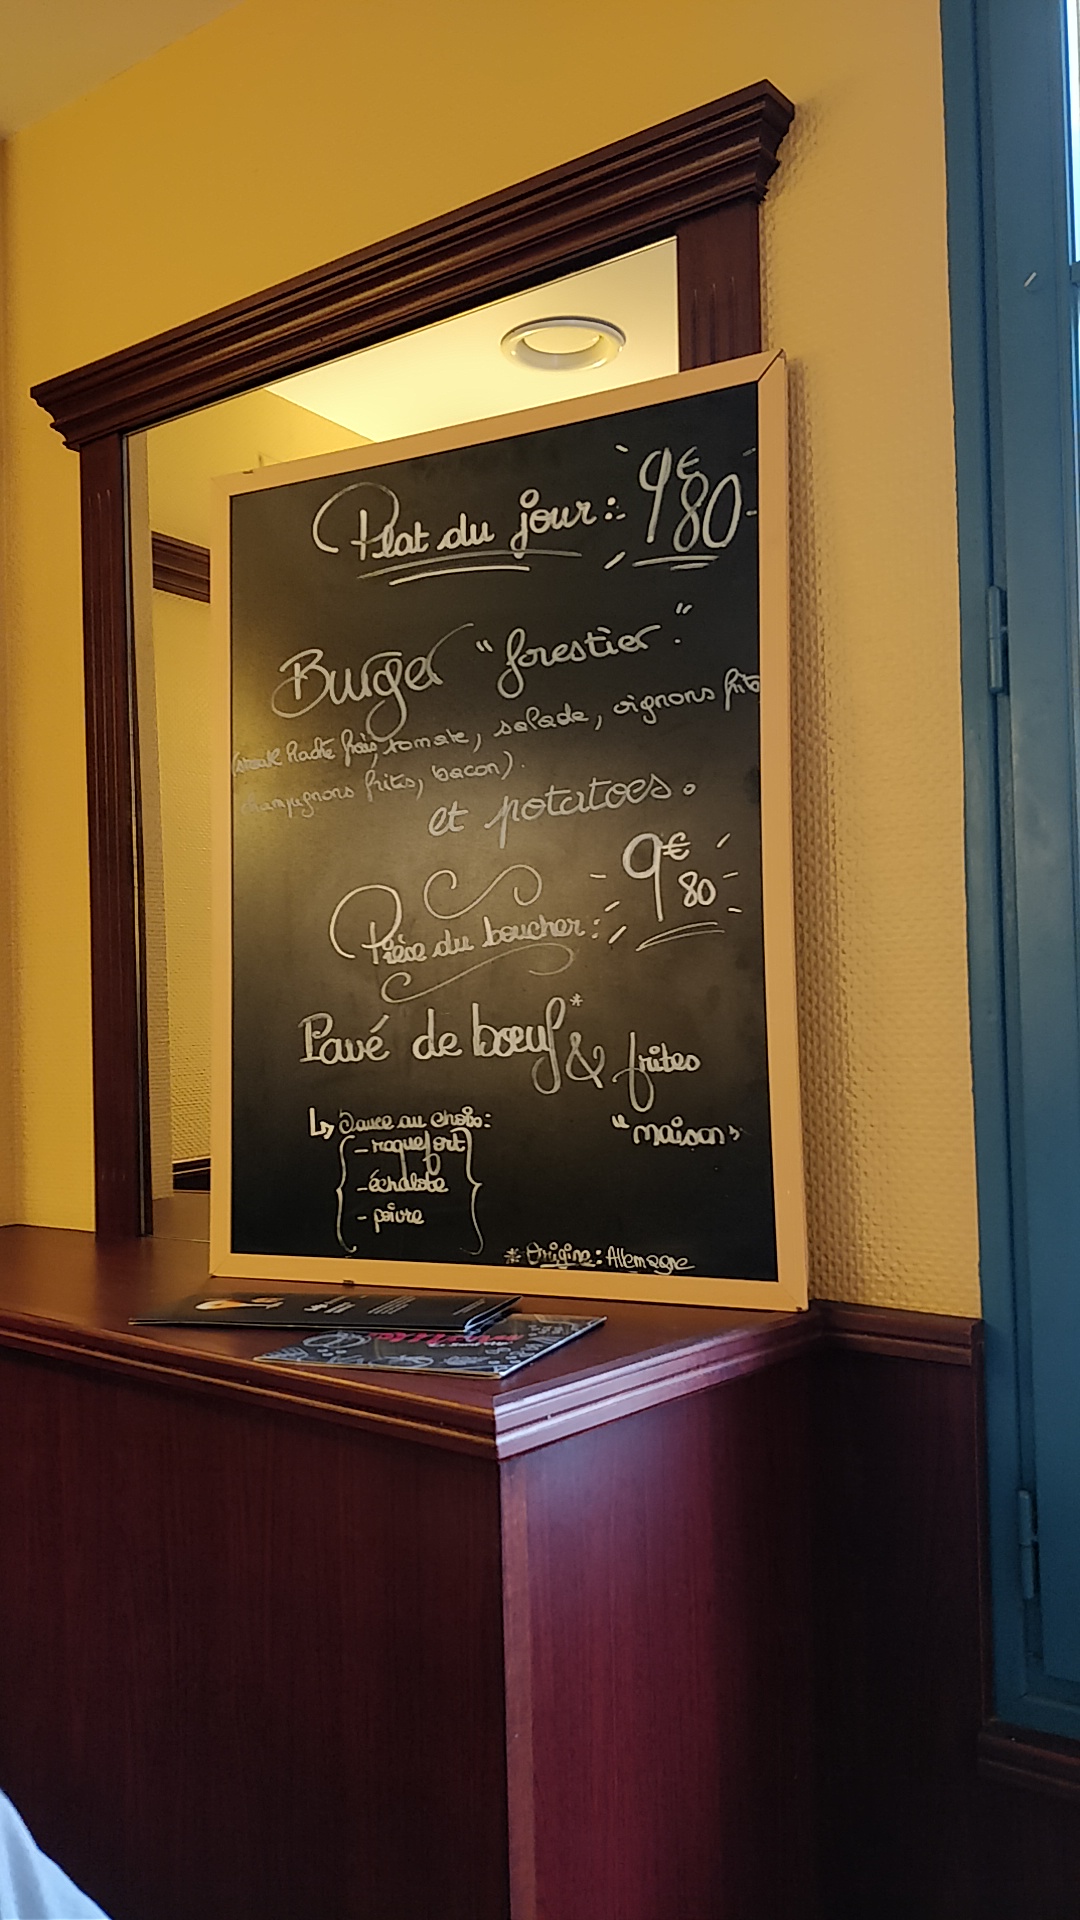 Plat du jour : 9€80
Burger "forestier".
(steak haché frais, tomate, salade, oignons frits
champignons frits, bacon).
et potatoes.
9€80
Pièce du boucher :
Pavé de bœuf* & frites
"maison"
↳ Sauce au choix :
- roquefort
- échalote
- poivre
* Origine : Allemagne